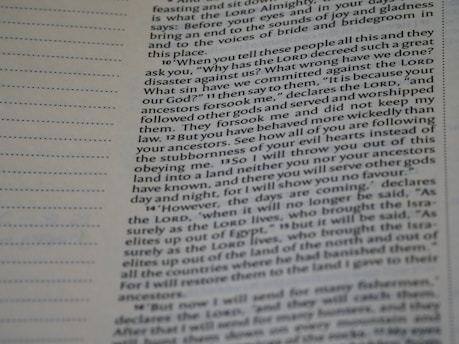 feasting and sit down
is what the LORD Almighty, the
says: Before your eyes and in your days
bring an end to the sounds of joy and gladness
and to the voices of bride and bridegroom in
this place.
10 'When you tell these people all this and they
ask you, "Why has the LORD decreed such a great
disaster against us? What wrong have we done?
What sin have we committed against the LORD
our God?" 11 then say to them, "It is because your
ancestors forsook me," declares the LORD, "and
followed other gods and served and worshipped
them. They forsook me and did not keep my
law. 12 But you have behaved more wickedly than
your ancestors. See how all of you are following
the stubbornness of your evil hearts instead of
obeying me. 13 So I will throw you out of this
land into a land neither you nor your ancestors
have known, and there you will serve other gods
day and night, for I will show you no favour."
14 'However, the days are coming,' declares
the LORD, 'when it will no longer be said, "As
surely as the LORD lives, who brought the Isra-
elites up out of Egypt," 15 but it will be said, "As
surely as the LORD lives, who brought the Isra-
elites up out of the land of the north and out of
all the countries where he had banished them."
For I will restore them to the land I gave to their
ancestors.
16 'But now I will send for many fishermen,'
declares the LORD, 'and they will catch them.
After that I will send for many hunters, and they
will hunt them down on every mountain and
of the rocks. 17 My eyes